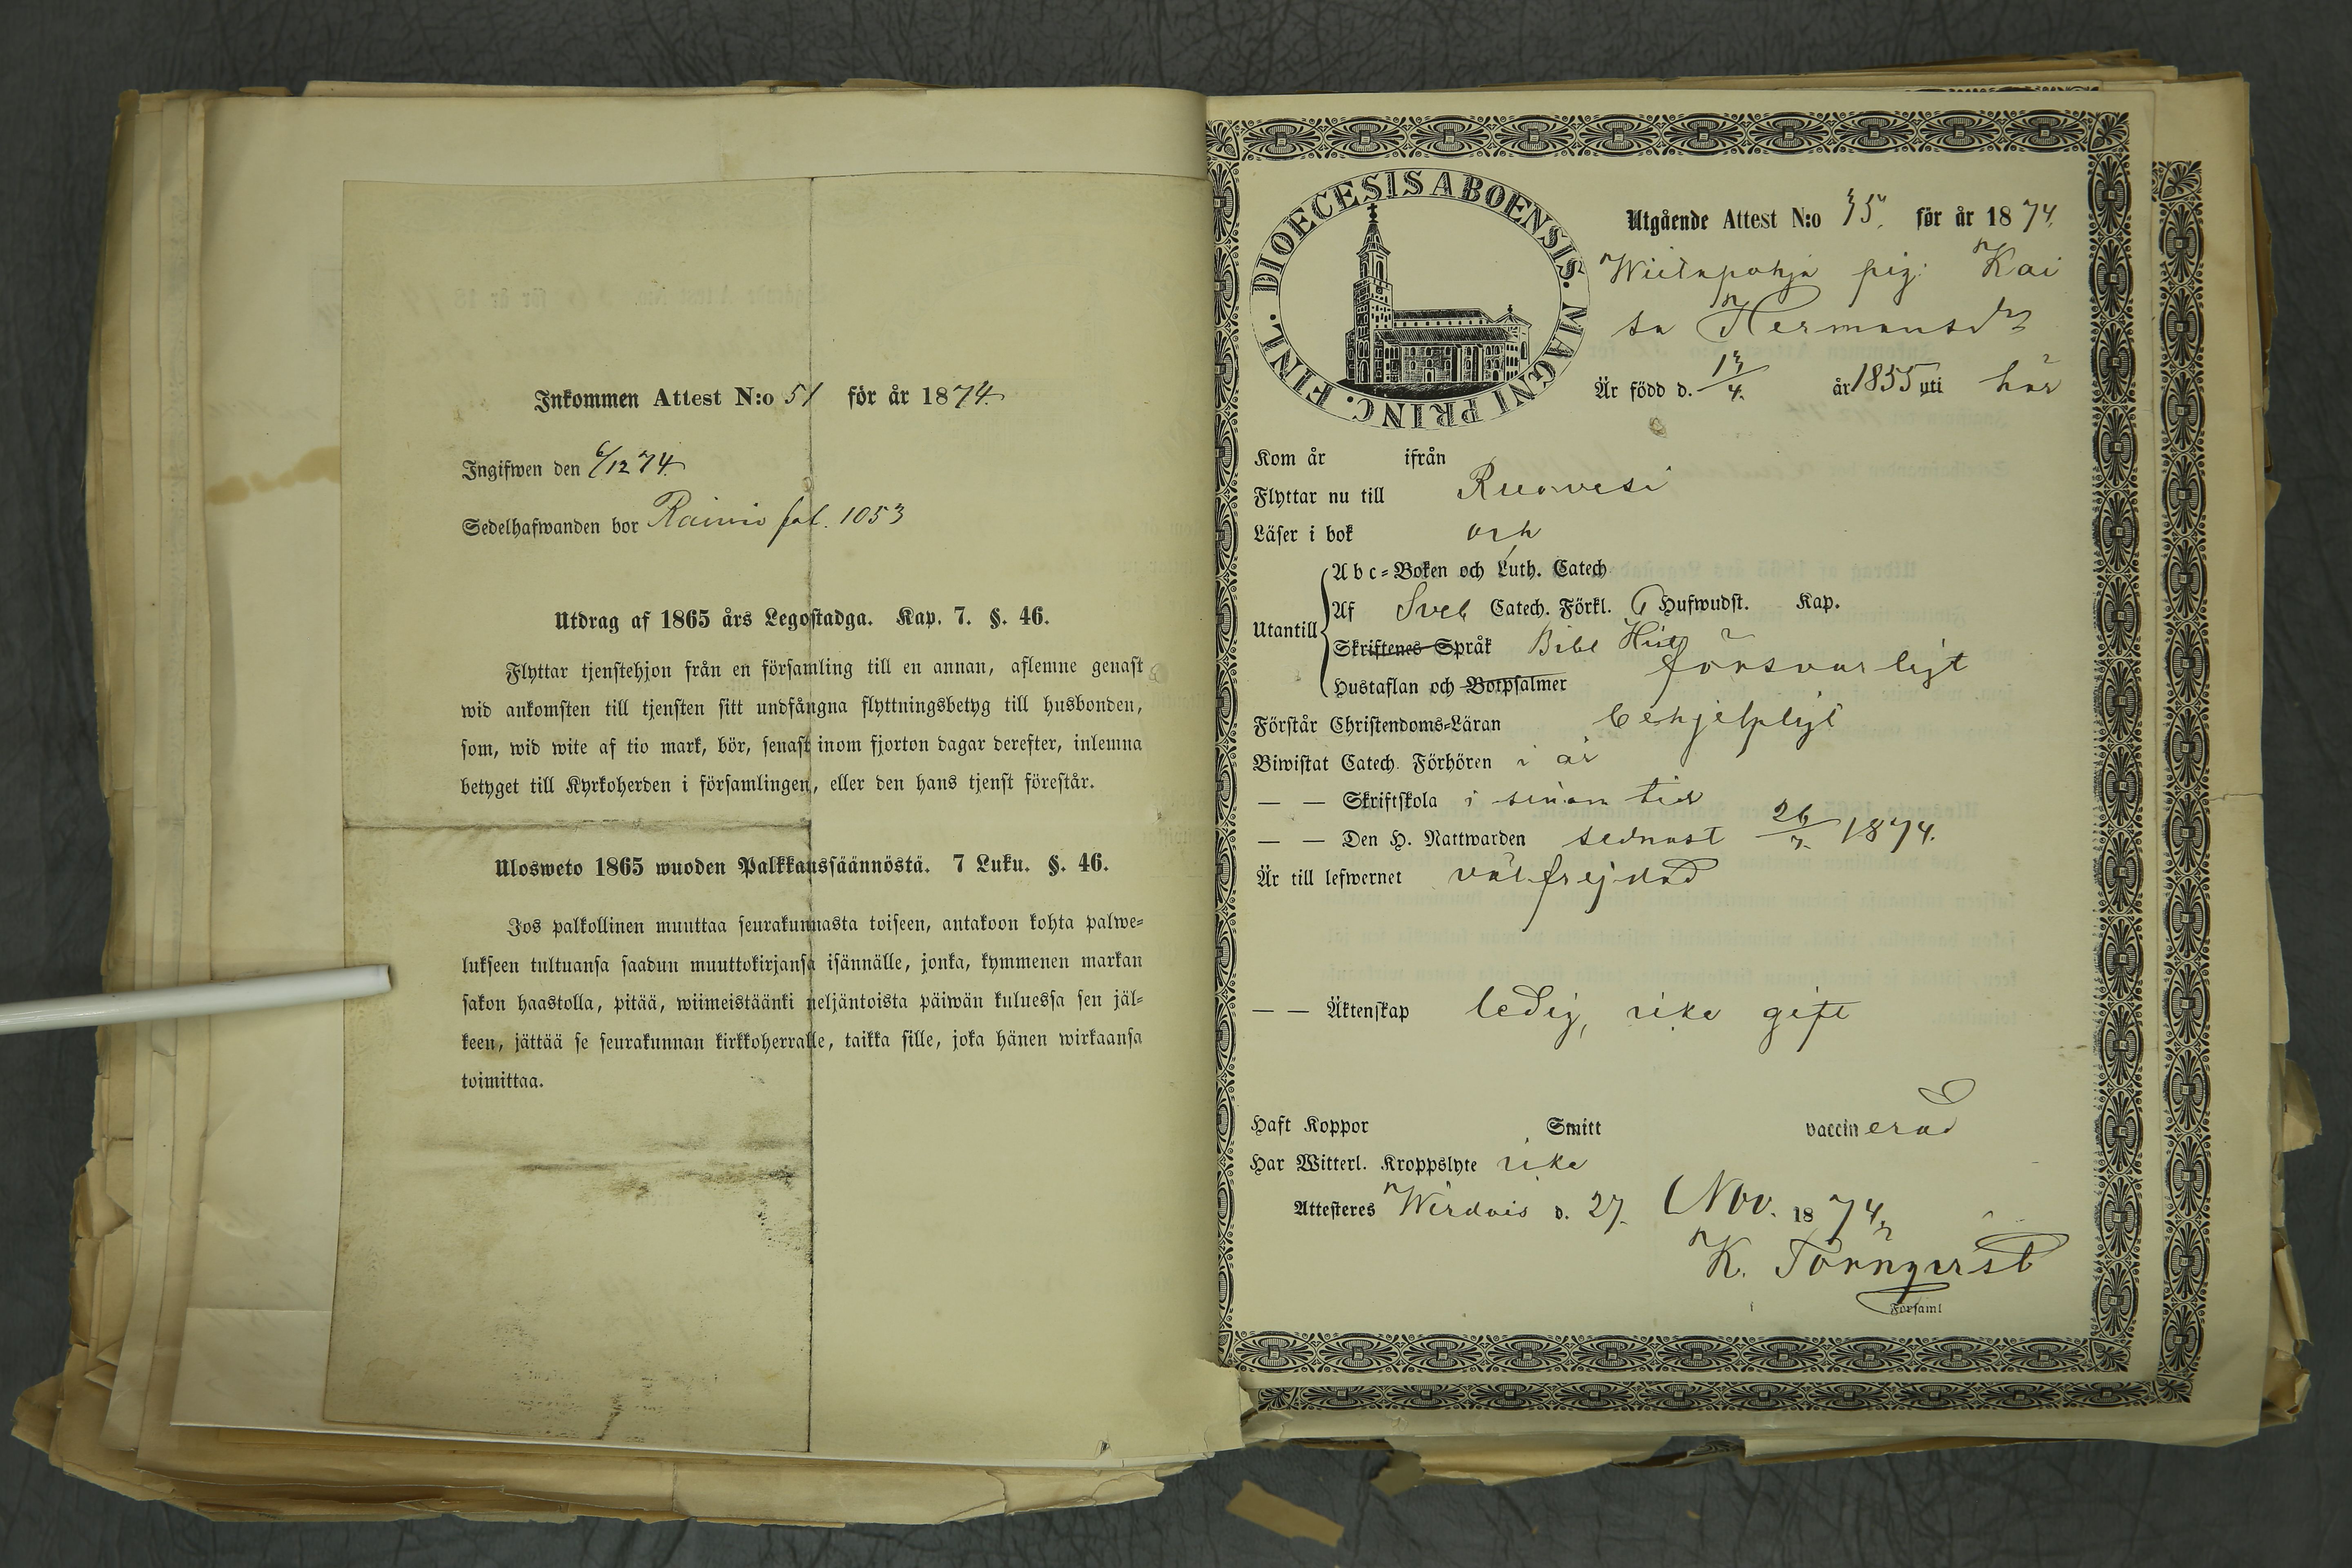 Inkommen Attest N:o 51 för år 1874.
Ingifwen den 6/12 74.
Sedelhafwanden bor Rainio fol. 1053
Utdrag af 1865 års Legostadga. Kap. 7. §. 46.
Flyttar tjenstehjon från en församling till en annan, aflemne genast
wid ankomsten till tjensten sitt undfångna flyttningsbetyg till husbonden,
som, wid wite af tio mark, bör, senast inom fjorton dagar derefter, inlemna
betyget till Kyrkoherden i församlingen, eller den hans tjenst förestår.
Ulosweto 1865 wuoden Palkkaussäännöstä. 7 Luku. §. 46.
Jos palkollinen muuttaa seurakunnasta toiseen, antakoon kohta palwe-
lukseen tultuansa saadun muuttokirjansa isännälle, jonka, kymmenen markan
sakon haastolla, pitää, wiimeistäänki neljäntoista päiwän kuluessa sen jäl-
keen, jättää se seurakunnan kirkkoherralle, taikka sille, joka hänen wirkaansa
toimittaa.
DIOECESIS ABOENSIS. MAGNI PRINC. FINL.
Utgående Attest N:o 35. för år 1874.
Wiitapohja pig. Kai
sa Hermansdr
Är född d. 13/4. år 1855 uti här
Kom år ifrån
Flyttar nu till Ruovesi
Läser i bok och
Abc-Boken och Luth. Catech
Af Sveb Catech. Förkl. 6 Hufwudst. Kap.
Utantill
Skriftenes Språk Bibl Hist
försvarligt
Hustaflan och Botpsalmer
Förstår Christendoms-Läran behjelpligt
Biwistat Catech. Förhören i år
— — Skriftskola i sinom tid
— — Den H. Nattwarden sednast 26/7 1874.
Är till lefwernet välfrejdad
— — Äktenskap ledig, icke gift
Haft Koppor Smitt vaccinerad
Har Witterl. Kroppslyte icke
Attesteres Wirdois d. 27. Nov. 1874,
K. Törnqvist
Forsaml